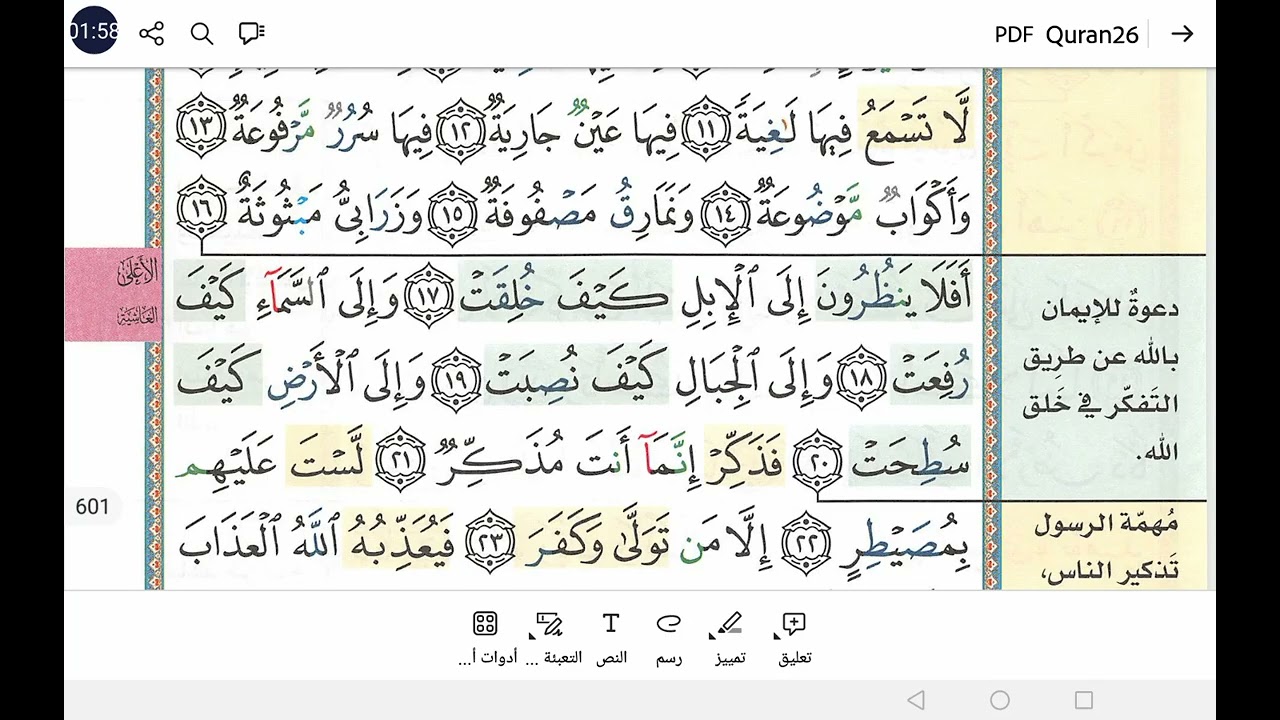 01:58
PDF Quran26
لَّا تَسْمَعُ فِيهَا لَٰغِيَةً ١١ فِيهَا عَيْنٌ جَارِيَةٌ ١٢ فِيهَا سُرُرٌ مَّرْفُوعَةٌ ١٣
وَأَكْوَابٌ مَّوْضُوعَةٌ ١٤ وَنَمَارِقُ مَصْفُوفَةٌ ١٥ وَزَرَابِيُّ مَبْثُوثَةٌ ١٦
أَفَلَا يَنظُرُونَ إِلَى ٱلْإِبِلِ كَيْفَ خُلِقَتْ ١٧ وَإِلَى ٱلسَّمَآءِ كَيْفَ
رُفِعَتْ ١٨ وَإِلَى ٱلْجِبَالِ كَيْفَ نُصِبَتْ ١٩ وَإِلَى ٱلْأَرْضِ كَيْفَ
سُطِحَتْ ٢٠ فَذَكِّرْ إِنَّمَآ أَنتَ مُذَكِّرٌ ٢١ لَّسْتَ عَلَيْهِم
بِمُصَيْطِرٍ ٢٢ إِلَّا مَن تَوَلَّىٰ وَكَفَرَ ٢٣ فَيُعَذِّبُهُ ٱللَّهُ ٱلْعَذَابَ
دعوةٌ للإيمان
بالله عن طريق
التَفكّر في خَلق
الله.
مُهمّة الرسول
تَذكير الناس،
الأعلى
الغاشية
601
تعليق
تمييز
رسم
النص
التعبئة ...
أدوات أ...